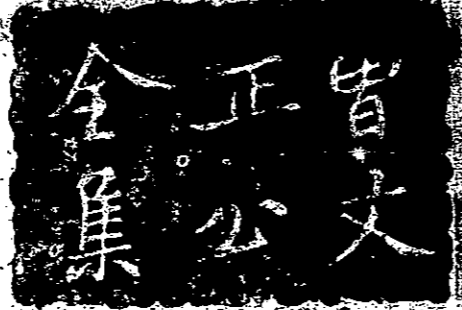 曾文
正公
全集